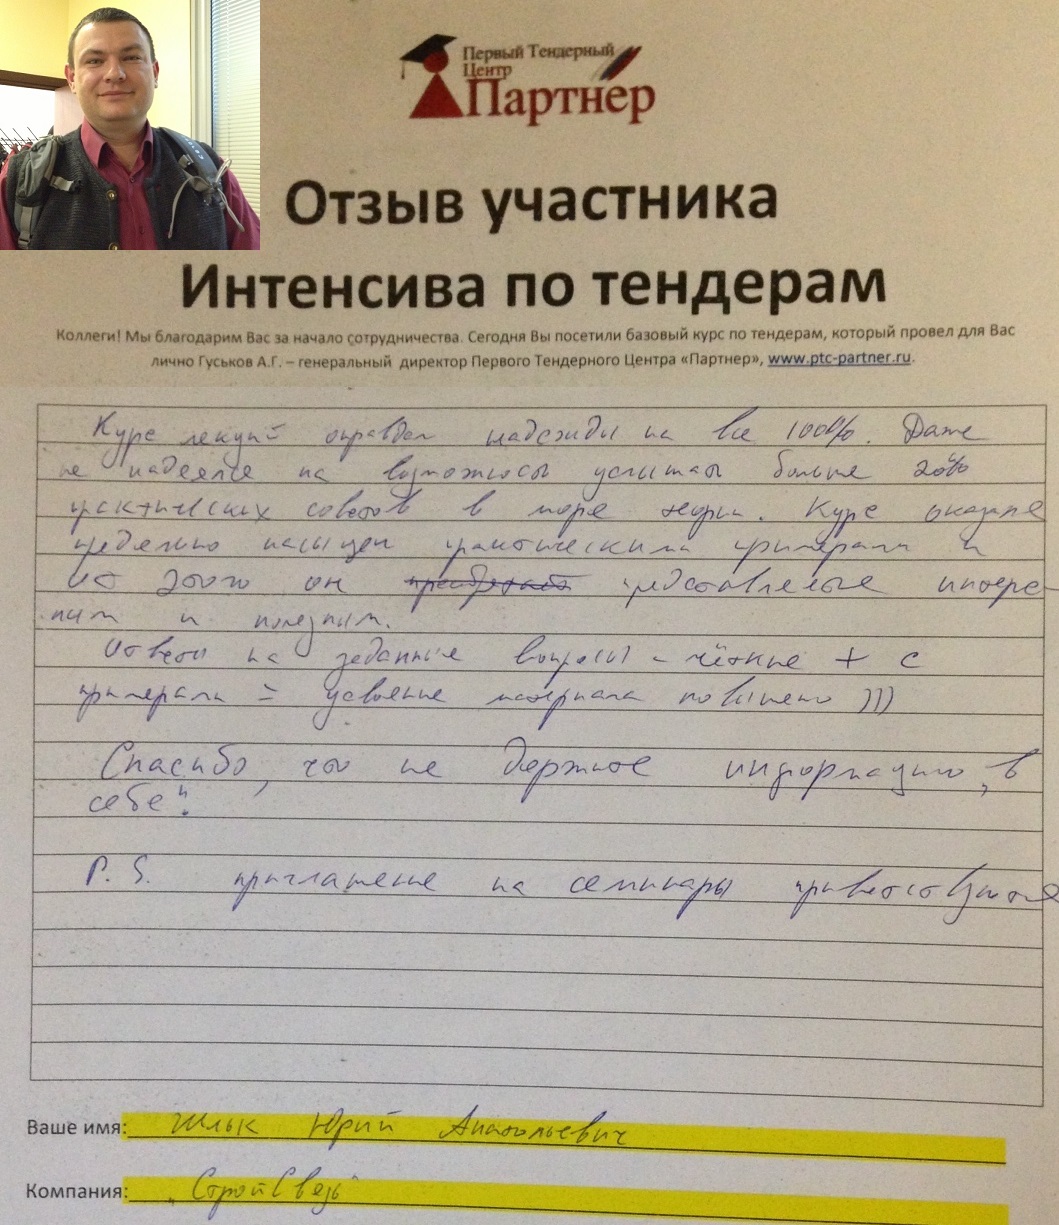 Первый Тендерный
Центр
Партнёр
Отзыв участника
Интенсива по тендерам
Коллеги! Мы благодарим Вас за начало сотрудничества. Сегодня Вы посетили базовый курс по тендерам, который провел для Вас
лично Гуськов А.Г. – генеральный директор Первого Тендерного Центра «Партнер», www.ptc-partner.ru.
Курс лекций оправдал надежды на все 100%. Даже
не надеялся на возможность услышать больше 20%
практических советов в море
Курс оказался
предельно насыщен практическими примерами и
от этого он представляется интерес
ным и полезным.
Ответы на заданные вопросы - чёткие + с
примерами = усвоение материала повышено )))
Спасибо, что не держите информацию „в
себе".
P.S. приглашение на семинары приветствуется
Ваше имя: Шлык Юрий Анатольевич
Компания: „СтройСвязь"